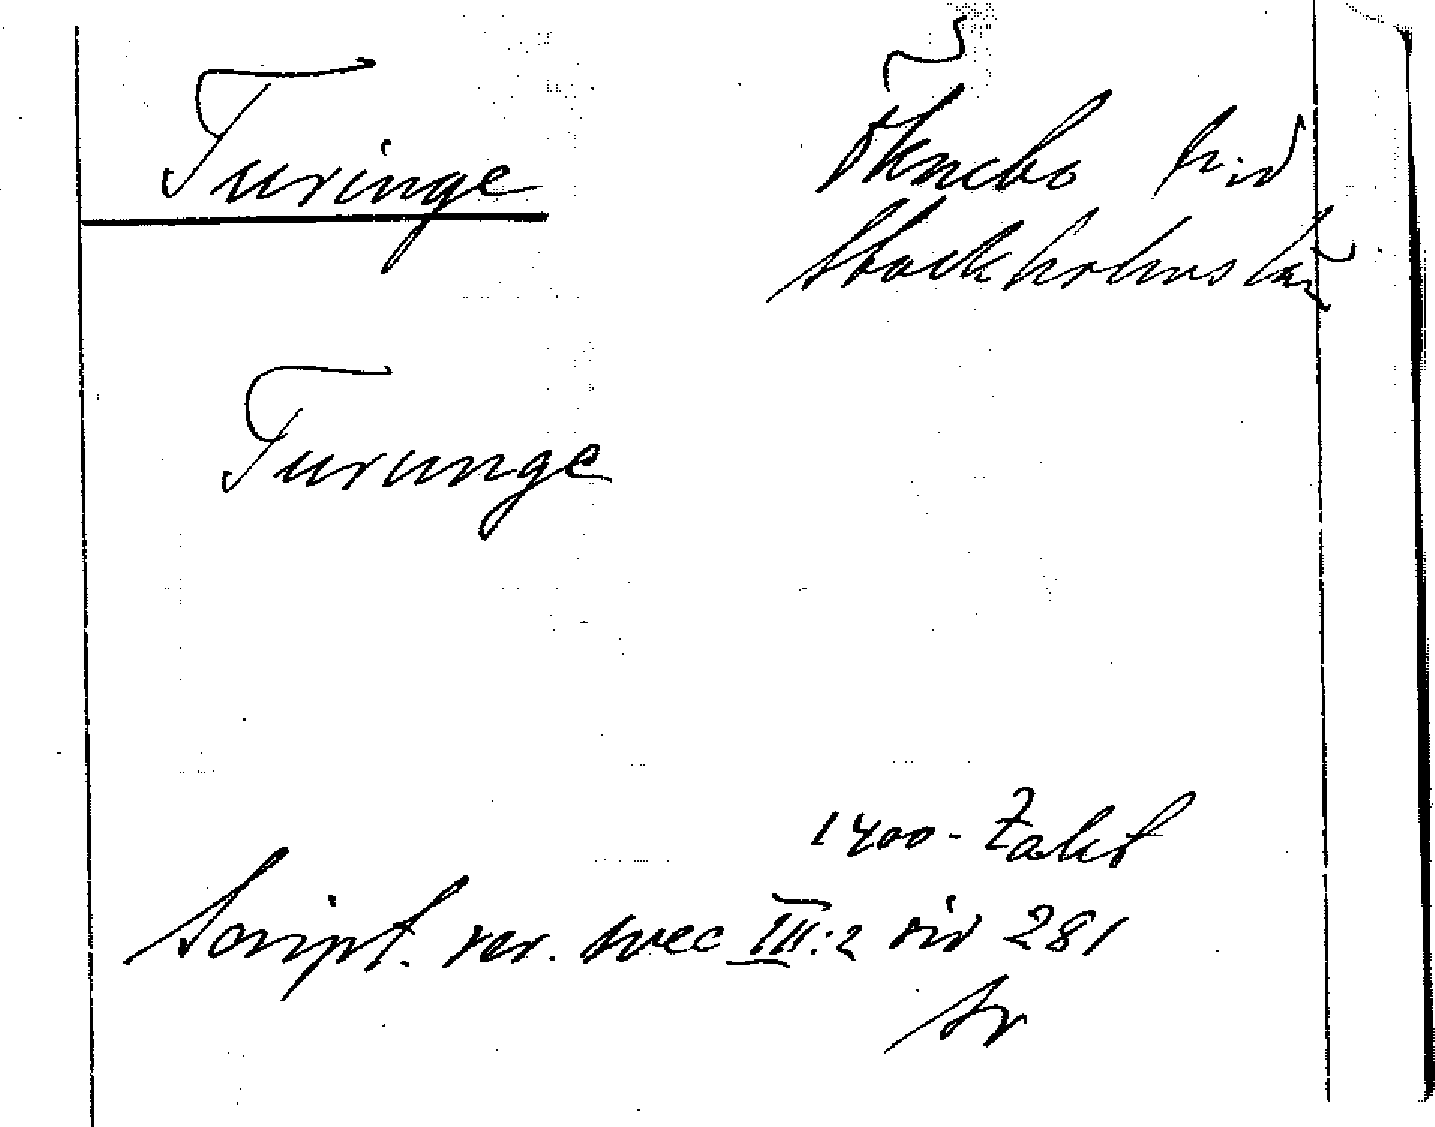 Turinge
Öknebo hd
Stockholms län
Turunge
1400-talet
Script. rer. svec III:2 sid 281